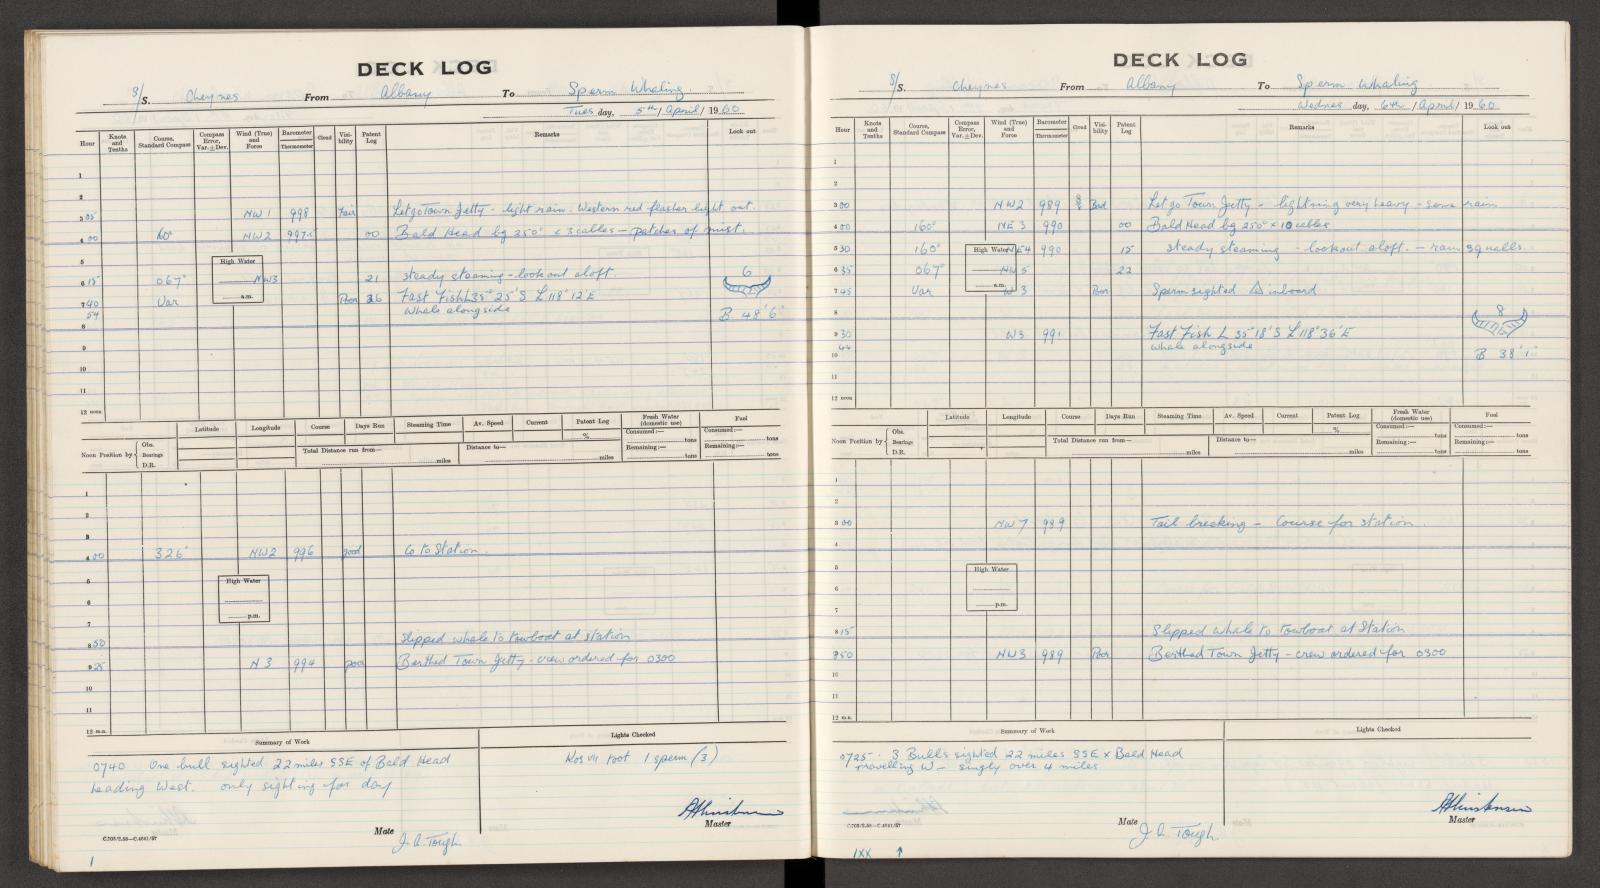 DECK LOG
S/S. Cheynes From Albany To Sperm Whaling.
Tues day, 5th / April / 1960
Hour Knots and Tenths Course, Standard Compass Compass Error, Var. ± Dev. Wind (True) and Force Barometer Thermometer Cloud Visi-bility Patent Log Remarks Look out
1
2
3 05 NW 1 998 Fair Let go Town Jetty - light rain. Western red flasher light out.
4 00 NW2 00 Bald Head bg 250° x 3 cables - patches of mist.
5
High Water
6 15 067° NW3 21 steady steaming - lookout aloft. 6
a.m.
7 40 Var Poor 26 Fast Fish L 35° 25' S L 118° 12' E
54 whale alongside B. 48' 6"
8
9
10
11
12 noon
Latitude Longitude Course Days Run Steaming Time Av. Speed Current Patent Log Fresh Water (domestic use) Fuel
% Consumed:— tons Consumed:— tons
Noon Position by Obs. Bearings D.R. Total Distance run from— miles Distance to— miles Remaining:— tons Remaining:— tons
1
2
3
4 00 326° NW2 996 good Co to Station.
5
High Water
6
p.m.
7
8 50 Slipped whale to towboat at station
9 25 N 3 994 poor Berthed Town Jetty - crew ordered for 0300
10
11
12 m.n.
Summary of Work Lights Checked
0740 One bull sighted 22 miles SSE of Bald Head
heading West. only sighting for day
Kos VII 1 sperm (3)
Master
Mate J. A. Tough
C.703/2.58—C.4641/57
1
DECK LOG
S/S. Cheynes From Albany To Sperm Whaling
Wednes day, 6th / April / 1960
Hour Knots and Tenths Course, Standard Compass Compass Error, Var. ± Dev. Wind (True) and Force Barometer Thermometer Cloud Visi-bility Patent Log Remarks Look out
1
2
3 00 NW2 989 Bad Let go Town Jetty - lightning very heavy - some rain
4 00 160° NE 3 990 00 Bald Head bg 250° x 10 cables
5 30 160° High Water NE4 990 15 steady steaming - lookout aloft. - rain squalls.
6 35 067° NW 5 22
a.m.
7 45 Var W 3 Poor Sperm sighted △ inboard
8 8
9 30 W3 991 Fast Fish L 35° 18' S L 118° 36' E
44 whale alongside B 38' 1"
10
11
12 noon
Latitude Longitude Course Days Run Steaming Time Av. Speed Current Patent Log Fresh Water (domestic use) Fuel
% Consumed:— tons Consumed:— tons
Noon Position by Obs. Bearings D.R. Total Distance run from— miles Distance to— miles Remaining:— tons Remaining:— tons
1
2
3 00 NW 7 989 Tail breaking - Course for station.
4
5
High Water
6
p.m.
7
8 15 Slipped whale to towboat at Station
9 50 NW3 989 Poor Berthed Town Jetty - crew ordered for 0300
10
11
12 m.n.
Summary of Work Lights Checked
0725 : 3 Bulls sighted 22 miles SSE x Bald Head
travelling W - singly over 4 miles
Master
Mate J. A. Tough
C.703/2.58—C.4641/57
1XX ↑